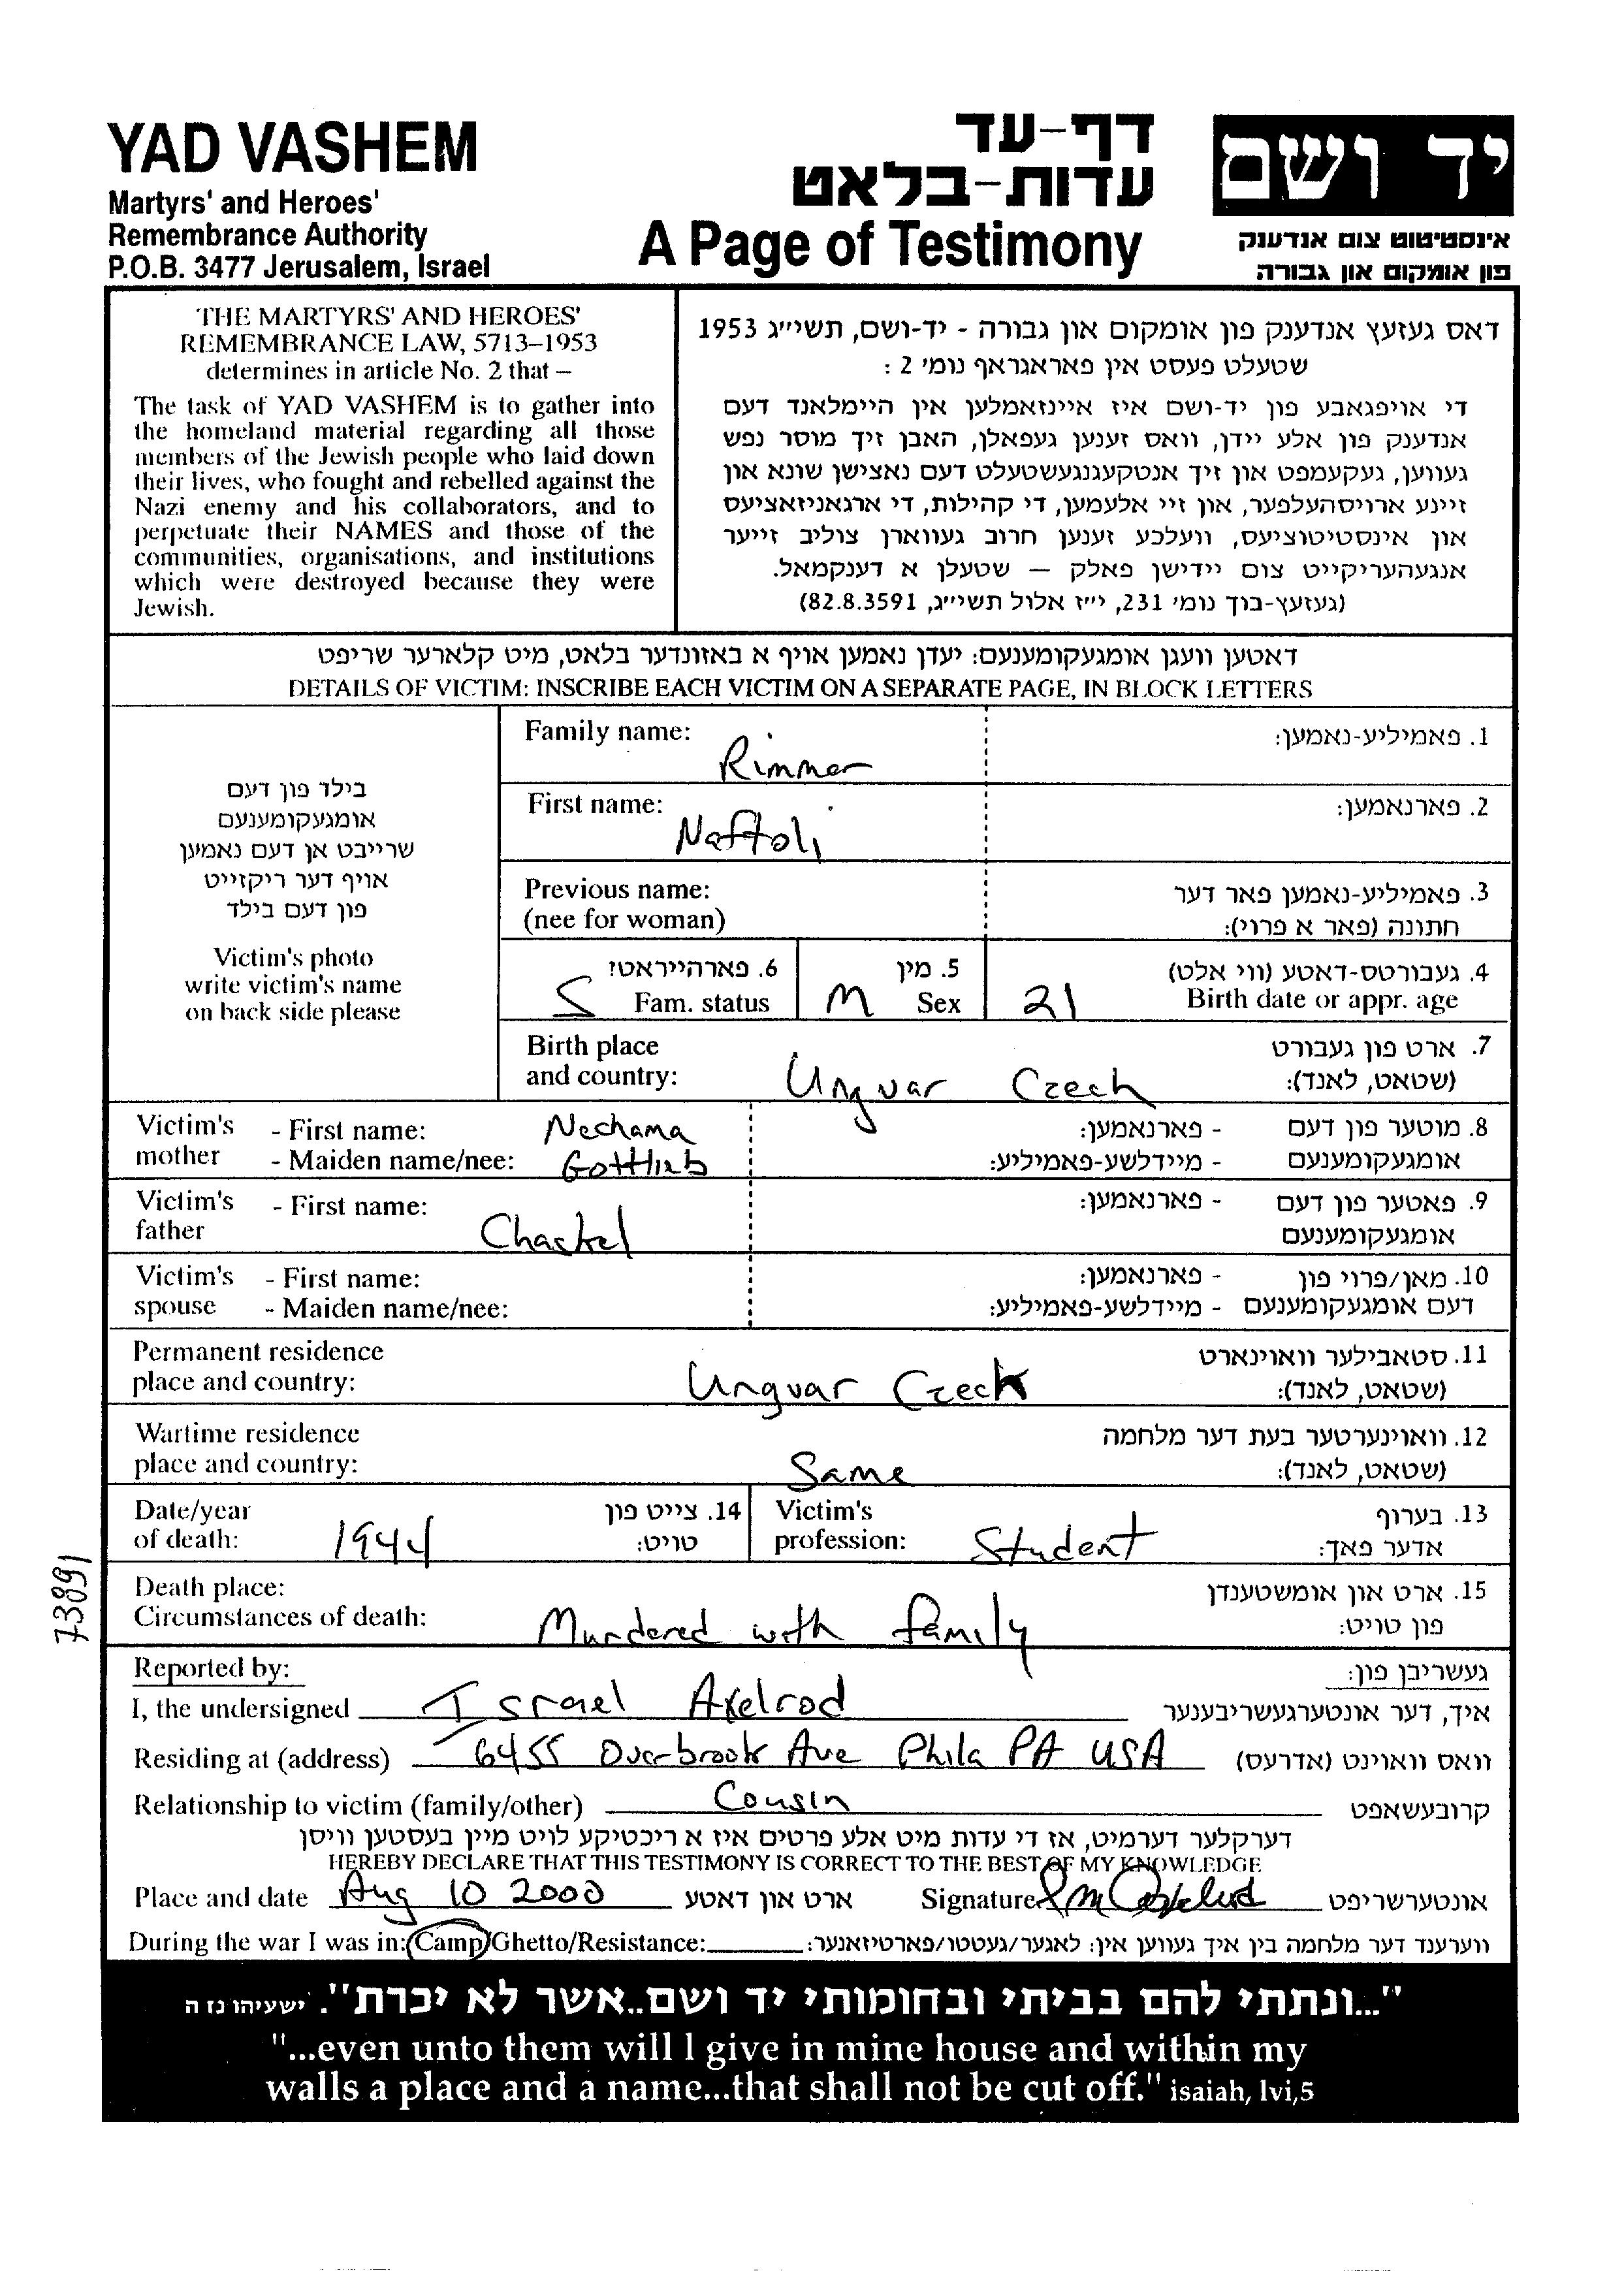 YAD VASHEM
Martyrs' and Heroes'
Remembrance Authority
P.O.B. 3477 Jerusalem, Israel
דף-עד
עדות-בלאט
A Page of Testimony
יד ושם
אינסטיטוט צום אנדענק
פון אומקום און גבורה
THE MARTYRS' AND HEROES'
REMEMBRANCE LAW, 5713–1953
determines in article No. 2 that –
The task of YAD VASHEM is to gather into
the homeland material regarding all those
members of the Jewish people who laid down
their lives, who fought and rebelled against the
Nazi enemy and his collaborators, and to
perpetuate their NAMES and those of the
communities, organisations, and institutions
which were destroyed because they were
Jewish.
דאס געזעץ אנדענק פון אומקום און גבורה - יד-ושם, תשי״ג 1953
שטעלט פעסט אין פאראגראף נומ׳ 2 :
די אויפגאבע פון יד-ושם איז איינזאמלען אין היימלאנד דעם
אנדענק פון אלע יידן, וואס זענען געפאלן, האבן זיך מוסר נפש
געווען, געקעמפט און זיך אנטקעגנגעשטעלט דעם נאצישן שונא און
זיינע ארויסהעלפער, און זיי אלעמען, די קהילות, די ארגאניזאציעס
און אינסטיטוציעס, וועלכע זענען חרוב געווארן צוליב זייער
אנגעהעריקייט צום יידישן פאלק — שטעלן א דענקמאל.
(געזעץ-בוך נומ׳ 231, י״ז אלול תשי״ג, 82.8.3591)
דאטען וועגן אומגעקומענעם: יעדן נאמען אויף א באזונדער בלאט, מיט קלארער שריפט
DETAILS OF VICTIM: INSCRIBE EACH VICTIM ON A SEPARATE PAGE, IN BLOCK LETTERS
בילד פון דעם
אומגעקומענעם
שרייבט אן דעם נאמען
אויף דער ריקזייט
פון דעם בילד
Victim's photo
write victim's name
on back side please
Family name: Rimmer 1. פאמיליע-נאמען:
First name: Naftoli 2. פארנאמען:
Previous name: 3. פאמיליע-נאמען פאר דער
(nee for woman) חתונה (פאר א פרוי):
6. פארהייראטז 5. מין 4. געבורטס-דאטע (ווי אלט)
S Fam. status M Sex 21 Birth date or appr. age
Birth place 7. ארט פון געבורט
and country: Ungvar Czech (שטאט, לאנד):
Victim's - First name: Nechama - פארנאמען: 8. מוטער פון דעם
mother - Maiden name/nee: Gottlieb - מיידלשע-פאמיליע: אומגעקומענעם
Victim's - First name: - פארנאמען: 9. פאטער פון דעם
father Chaskel אומגעקומענעם
Victim's - First name: - פארנאמען: 10. מאן/פרוי פון
spouse - Maiden name/nee: - מיידלשע-פאמיליע: דעם אומגעקומענעם
Permanent residence 11. סטאבילער וואוינארט
place and country: Ungvar Czech (שטאט, לאנד):
Wartime residence 12. וואוינערטער בעת דער מלחמה
place and country: Same (שטאט, לאנד):
Date/year 14. צייט פון Victim's 13. בערוף
of death: 1944 טויט: profession: Student אדער פאך:
Death place: 15. ארט און אומשטענדן
Circumstances of death: Murdered with family פון טויט:
73891
Reported by: געשריבן פון:
I, the undersigned Israel Axelrod איך, דער אונטערגעשריבענער
Residing at (address) 6455 Overbrook Ave Phila PA USA וואס וואוינט (אדרעס)
Relationship to victim (family/other) Cousin קרובעשאפט
דערקלער דערמיט, אז די עדות מיט אלע פרטים איז א ריכטיקע לויט מיין בעסטען וויסן
HEREBY DECLARE THAT THIS TESTIMONY IS CORRECT TO THE BEST OF MY KNOWLEDGE
Place and date Aug 10 2000 ארט און דאטע Signature אונטערשריפט
During the war I was in: Camp/Ghetto/Resistance: ווערענד דער מלחמה בין איך געווען אין: לאגער/געטטו/פארטיזאנער:
"...ונתתי להם בביתי ובחומותי יד ושם..אשר לא יכרת". ישעיהו נז ה
"...even unto them will I give in mine house and within my
walls a place and a name...that shall not be cut off." isaiah, lvi,5